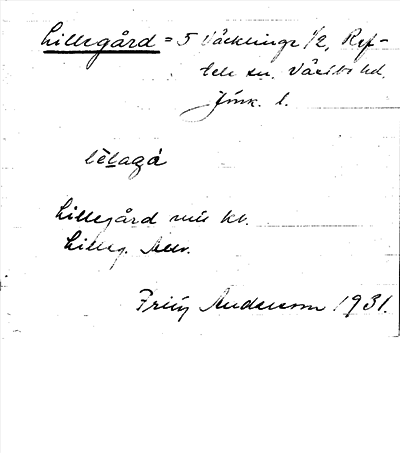 Lillegård = 5 Väcklinge 1/2, Ref-
tele sn. Västbo hd.
Jönk. l.
lĕlagå
Lillegård nus kb.
Lilleg. Allm.
Frity Andersson 1931.